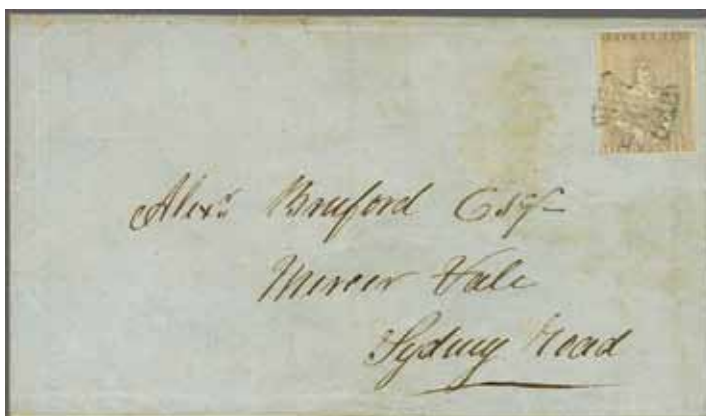 Alexr Bruford Esqr
Mercer Vale
Sydney Road